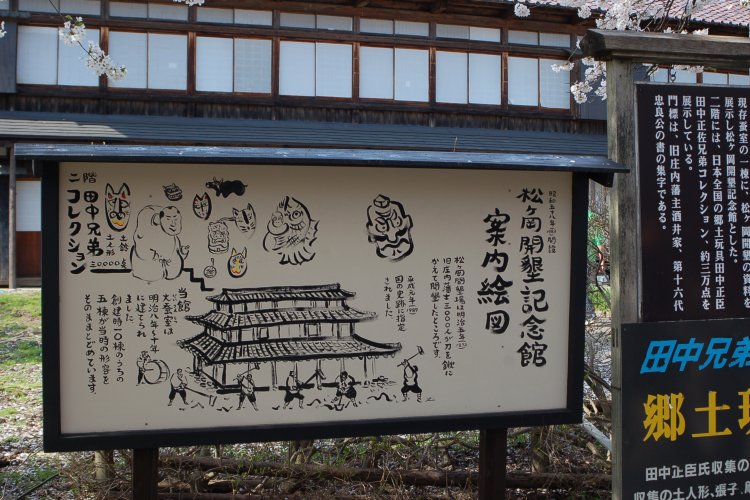 昭和五十八年(1983)開館
松ケ岡開墾記念館
案内絵図
松ケ岡開墾場は明治五年(1872)
旧庄内藩士3000人が刀を鍬に
かえて開墾したところです。
平成元年(1989)
国の史跡に指定
されました。
当館
大蚕室は
明治八年〜十年
に建てられ
ました。
創建時一〇棟のうちの
五棟が当時の形容を
そのままとどめています。
二階
田中兄弟
コレクション
土鈴
土人形
30000点
現存蚕室の一棟で、松ヶ岡開墾の資料を
展示し松ヶ岡開墾記念館とした。
二階には、日本全国の郷土玩具田中正臣
田中正佐兄弟コレクション、約三万点を
展示している。
門標は、旧庄内藩主酒井家、第十六代
忠良公の書の集字である。
田中兄弟
郷土玩
田中正臣氏収集の
収集の土人形、張子、